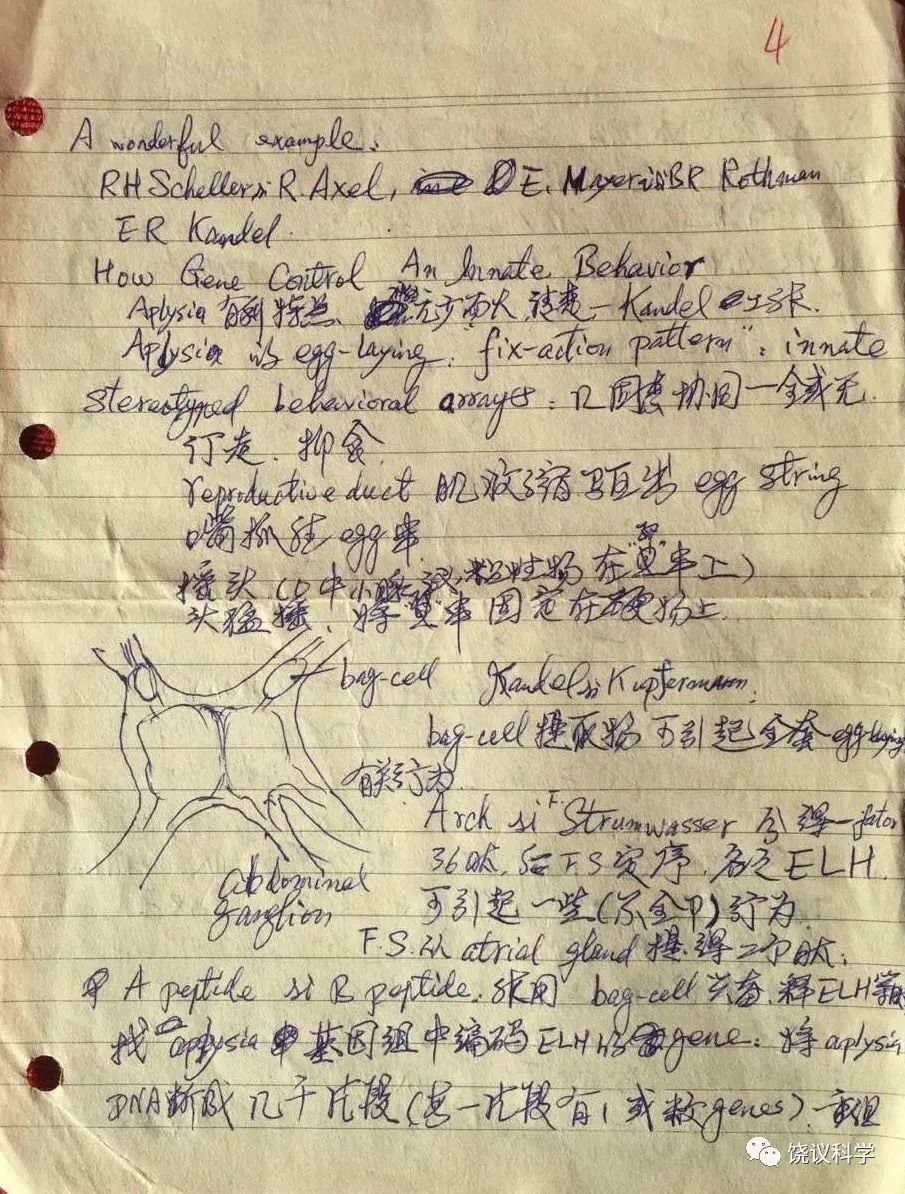 4
A wonderful example:
RH Scheller si R. Axel, E. Mayeri si BR Rothman
ER Kandel.
How Gene Control An Innate Behavior
Aplysia 有利特点、元少而大 清楚 — Kandel
Aplysia 的 egg-laying: fix-action pattern": innate
stereotyped behavioral arrays: 几固态协同一全或无.
行走. 抑食
reproductive duct 肌收缩驱出 egg string
嘴抓住 egg 串.
摇头 (口中小腺 粘性物在"卵"串上)
头猛摇, 将"卵"串固定在硬物上.
bag-cell Kandel si Kupfermann.
bag-cell 提取物可引起全套 egg-laying
有关行为.
Arch si F Strumwasser 分得一 fator
36肽, 后 F.S 定序, 名之 ELH.
abdominal
ganglion
可引起一些(不全部)行为.
F.S. 从 atrial gland 提得二个肽:
A peptide si B peptide, 作用 bag-cell 兴奋, 释 ELH
找 aplysia 基因组中编码 ELH 的 gene: 将 aplysia
DNA 断成几千片段 (每一片段有 1 或数 genes) 重组
饶议科学